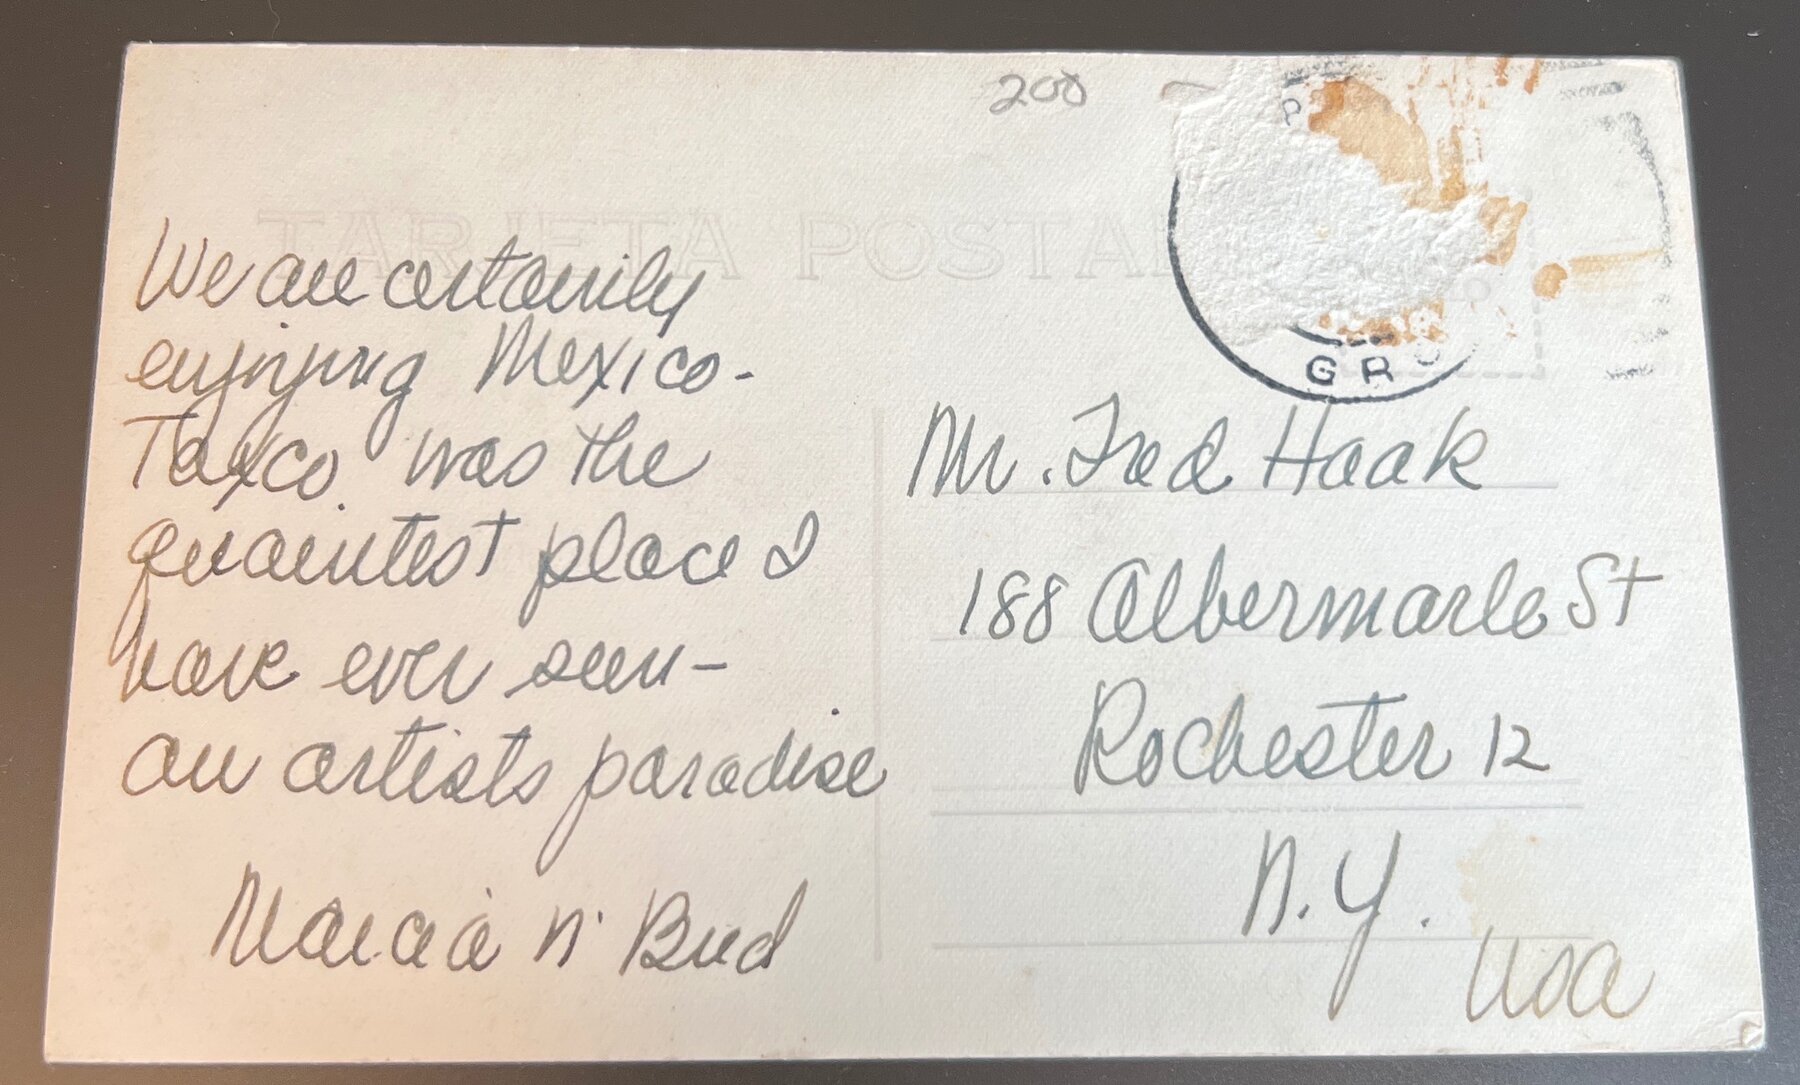 200
TARJETA POSTAL
P
GRO
We are certainly
enjoying Mexico-
Taxco was the
quaintest place I
have ever seen-
an artists paradise
Marcia n' Bud
Mr. Fred Haak
188 Albermarle St
Rochester 12
N.Y.
USA